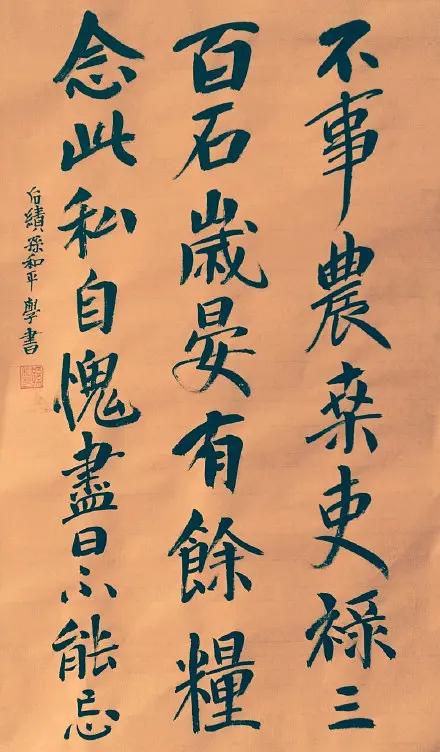 不事農桑吏禄三
百石歲晏有餘糧
念此私自愧盡日不能忘
后績孫和平學書